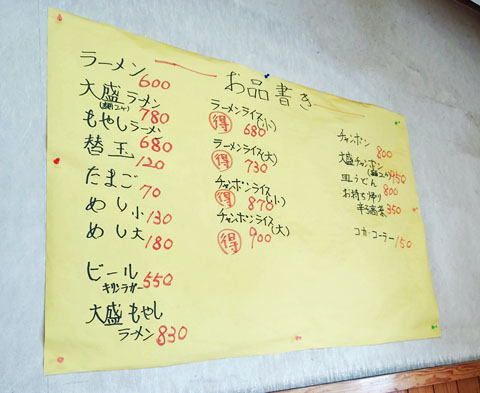 お品書き
ラーメン 600
大盛ラーメン 780
もやしラーメン 680
替玉 120
たまご 70
めし小 130
めし大 180
ビール 550
キリンラガー
大盛もやし
ラーメン 830
ラーメンライス(小)
得 680
ラーメンライス(大)
得 730
チャンポンライス(小)
得 870
チャンポンライス(大)
得 900
チャンポン 800
大盛チャンポン 950
皿うどん 800
お持ち帰り
350
コカ・コーラー 150